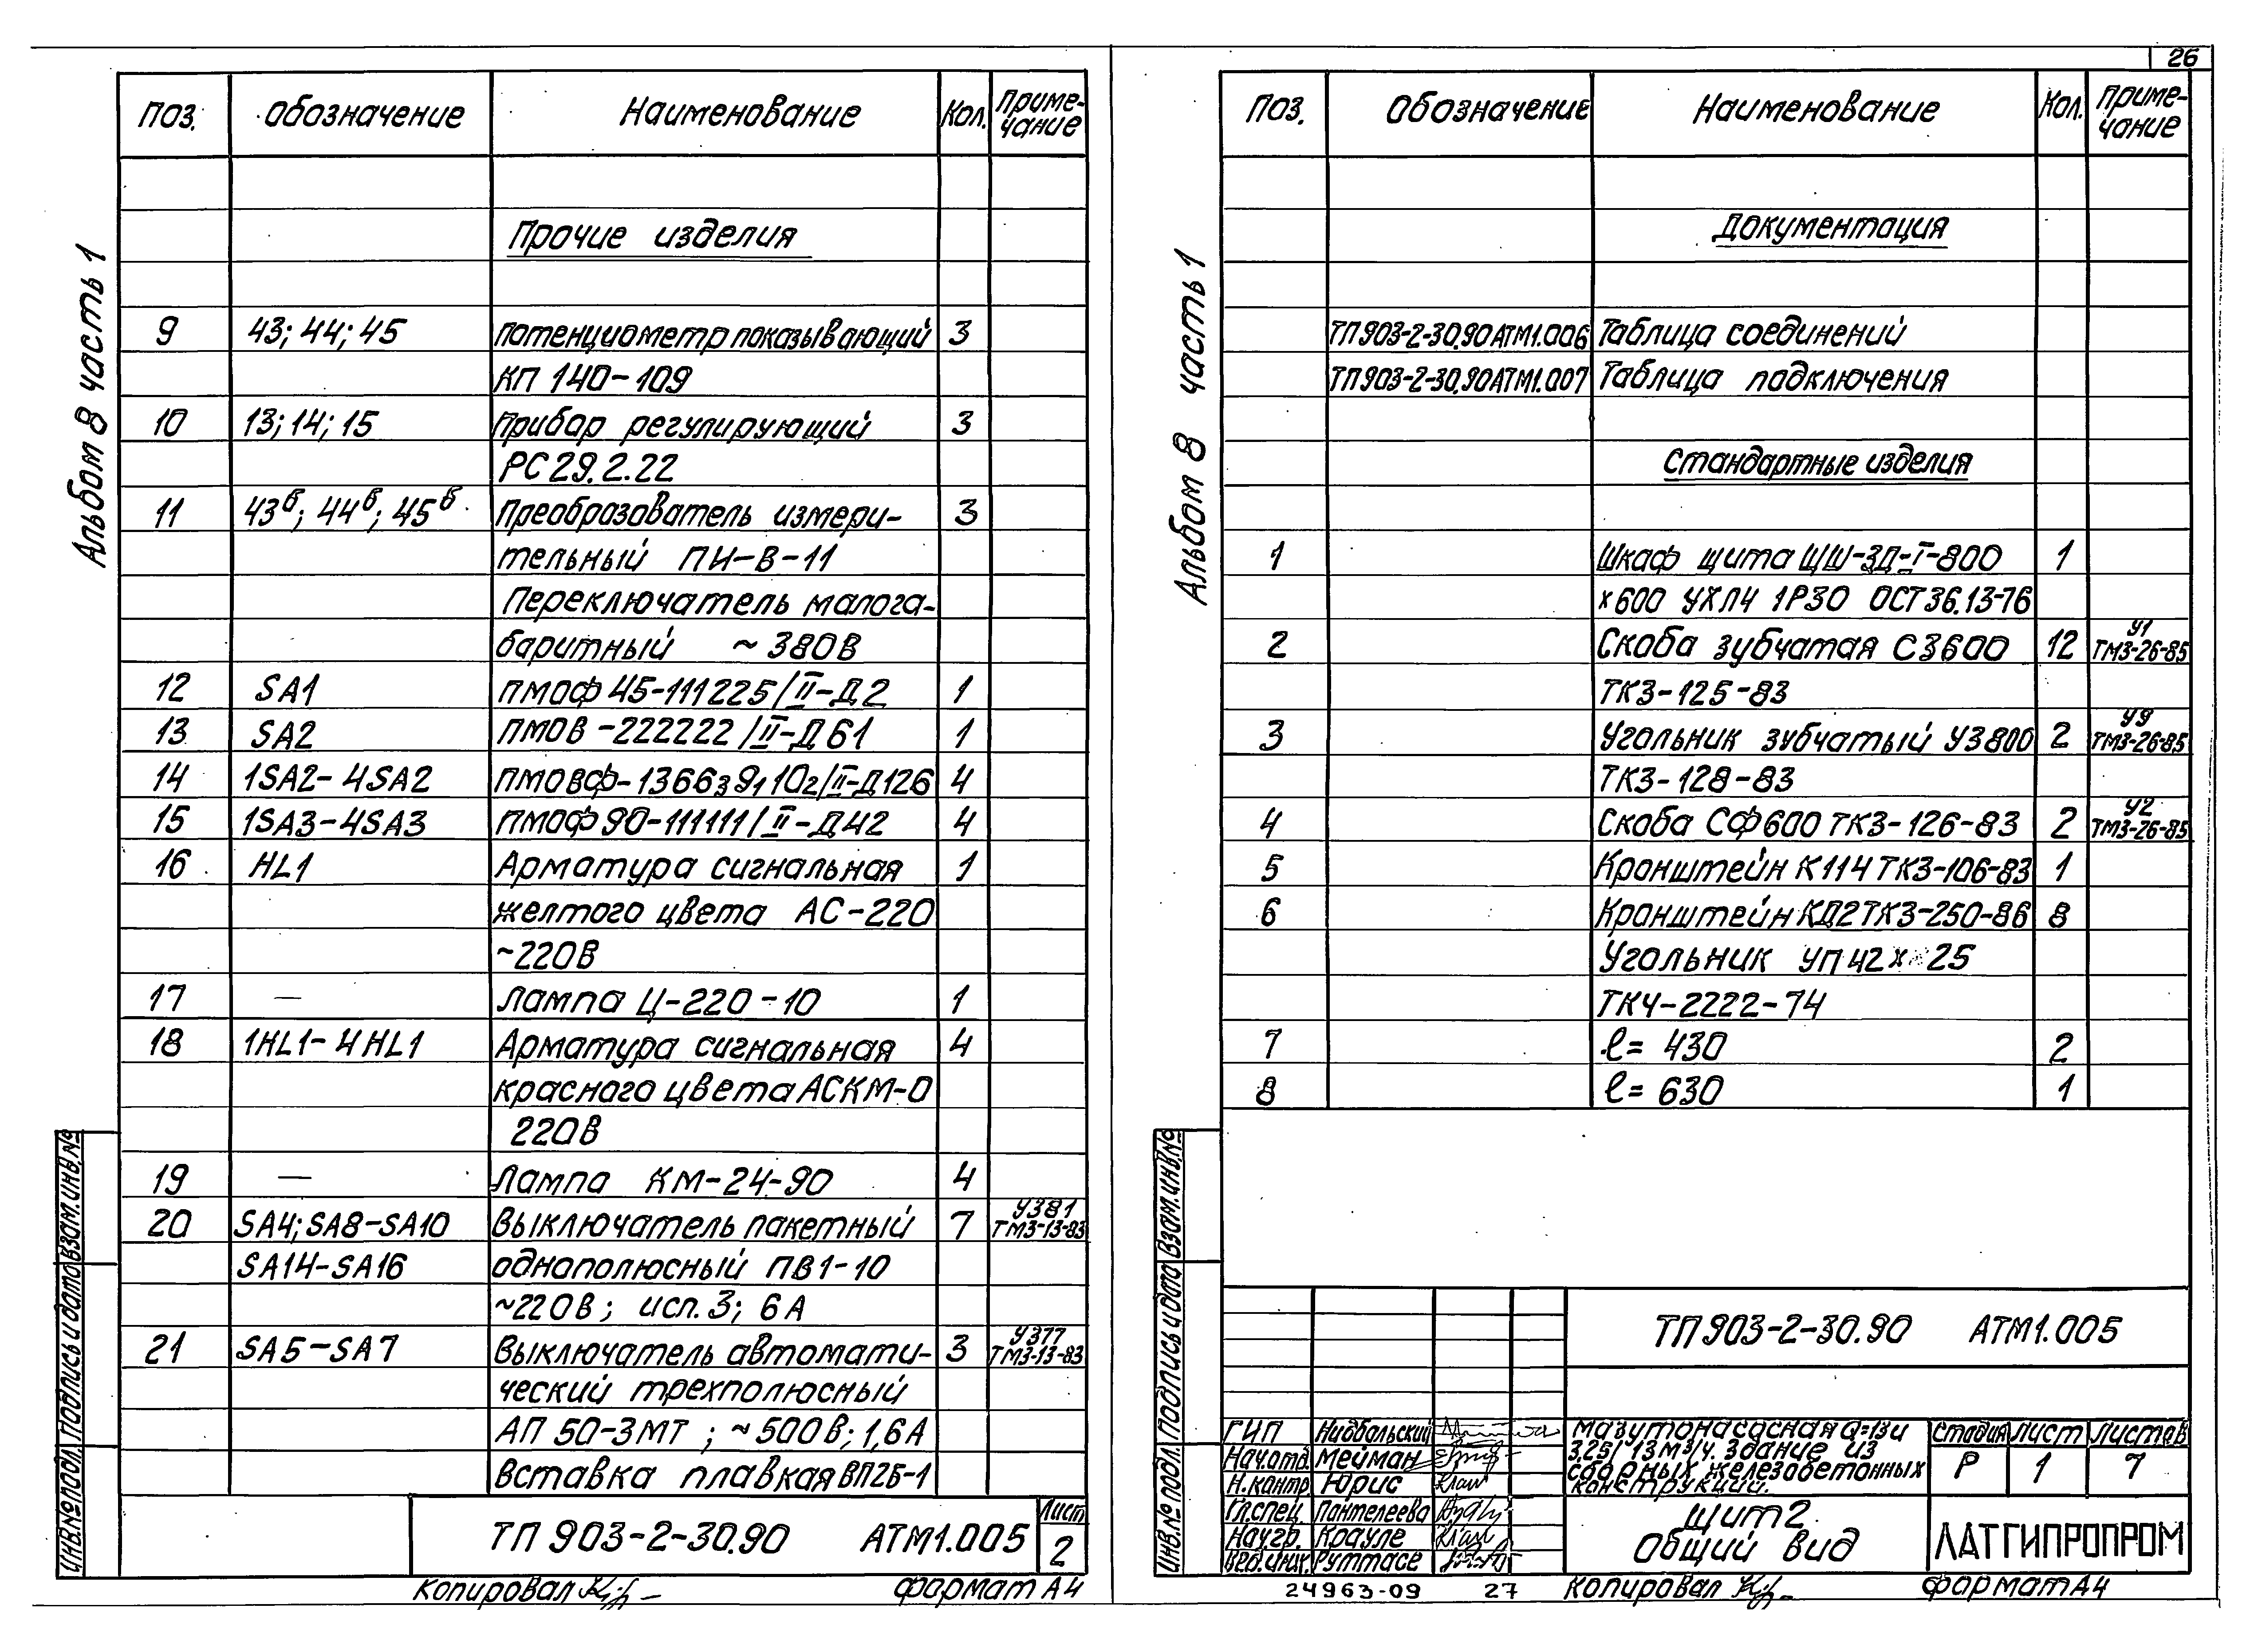 Альбом 8 часть 1
Поз. Обозначение Наименование Кол. Примечание
Прочие изделия
9 43; 44; 45 Потенциометр показывающий 3
КП 140-109
10 13; 14; 15 Прибор регулирующий 3
РС 29.2.22
11 43б; 44б; 45б Преобразователь измери- 3
тельный ПИ-В-11
Переключатель малога-
баритный ~380В
12 SA1 ПМОФ 45-111225/II-Д2 1
13 SA2 ПМОВ-222222/II-Д61 1
14 1SA2-4SA2 ПМОВФ-1366з9,10г/II-Д126 4
15 1SA3-4SA3 ПМОФ90-111111/II-Д42 4
16 HL1 Арматура сигнальная 1
желтого цвета АС-220
~220В
17 — Лампа Ц-220-10 1
18 1HL1-4HL1 Арматура сигнальная 4
красного цвета АСКМ-0
220В
19 — Лампа КМ-24-90 4
20 SA4; SA8-SA10 Выключатель пакетный 7 У381 ТМ3-13-83
SA14-SA16 однополюсный ПВ1-10
~220В; исп. 3; 6А
21 SA5-SA7 Выключатель автомати- 3 У377 ТМ3-13-83
ческий трехполюсный
АП 50-3МТ; ~500В; 1,6А
Вставка плавкая ВП2Б-1
ТП 903-2-30.90 АТМ1.005
Лист
2
Инв.№ подл. Подпись и дата Взам.инв.№
Копировал Формат А4
26
Альбом 8 часть 1
Поз. Обозначение Наименование Кол. Примечание
Документация
ТП903-2-30.90АТМ1.006 Таблица соединений
ТП903-2-30.90АТМ1.007 Таблица подключения
Стандартные изделия
1 Шкаф щита ЩШ-ЗД-I-800 1
х600 УХЛ4 1Р30 ОСТ36.13-76
2 Скоба зубчатая СЗ600 12 У1 ТМ3-26-85
ТК3-125-83
3 Угольник зубчатый УЗ800 2 У9 ТМ3-26-85
ТК3-128-83
4 Скоба СФ600 ТК3-126-83 2 У2 ТМ3-26-85
5 Кронштейн К114 ТК3-106-83 1
6 Кронштейн КД2 ТК3-250-86 8
Угольник УП 42х25
ТК4-2222-74
7 ℓ= 430 2
8 ℓ= 630 1
Инв.№ подл. Подпись и дата Взам.инв.№
ТП903-2-30.90 АТМ1.005
ГИП Нидбальский
Нач.отд. Мейман
Н.контр. Юрис
Гл.спец. Пантелеева
Нач.гр. Крауле
Вед.инж. Руттасе
Мазутонасосная Q=13и
3,25/13м³/ч. Здание из
сборных железобетонных
конструкций.
Стадия Лист Листов
Р 1 7
Щит 2
Общий вид
ЛАТГИПРОПРОМ
24963-09 27 Копировал Формат А4